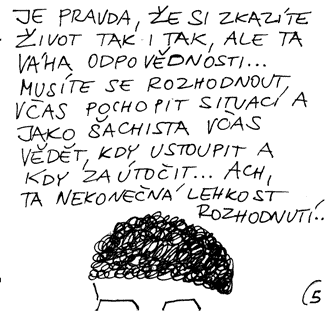 JE PRAVDA, ŽE SI ZKAZÍTE
ŽIVOT TAK I TAK, ALE TA
VÁHA ODPOVĚDNOSTI...
MUSÍTE SE ROZHODNOUT,
VČAS POCHOPIT SITUACI A
JAKO ŠACHISTA VČAS
VĚDĚT, KDY USTOUPIT A
KDY ZAÚTOČIT... ACH,
TA NEKONEČNÁ LEHKOST
ROZHODNUTÍ..
5